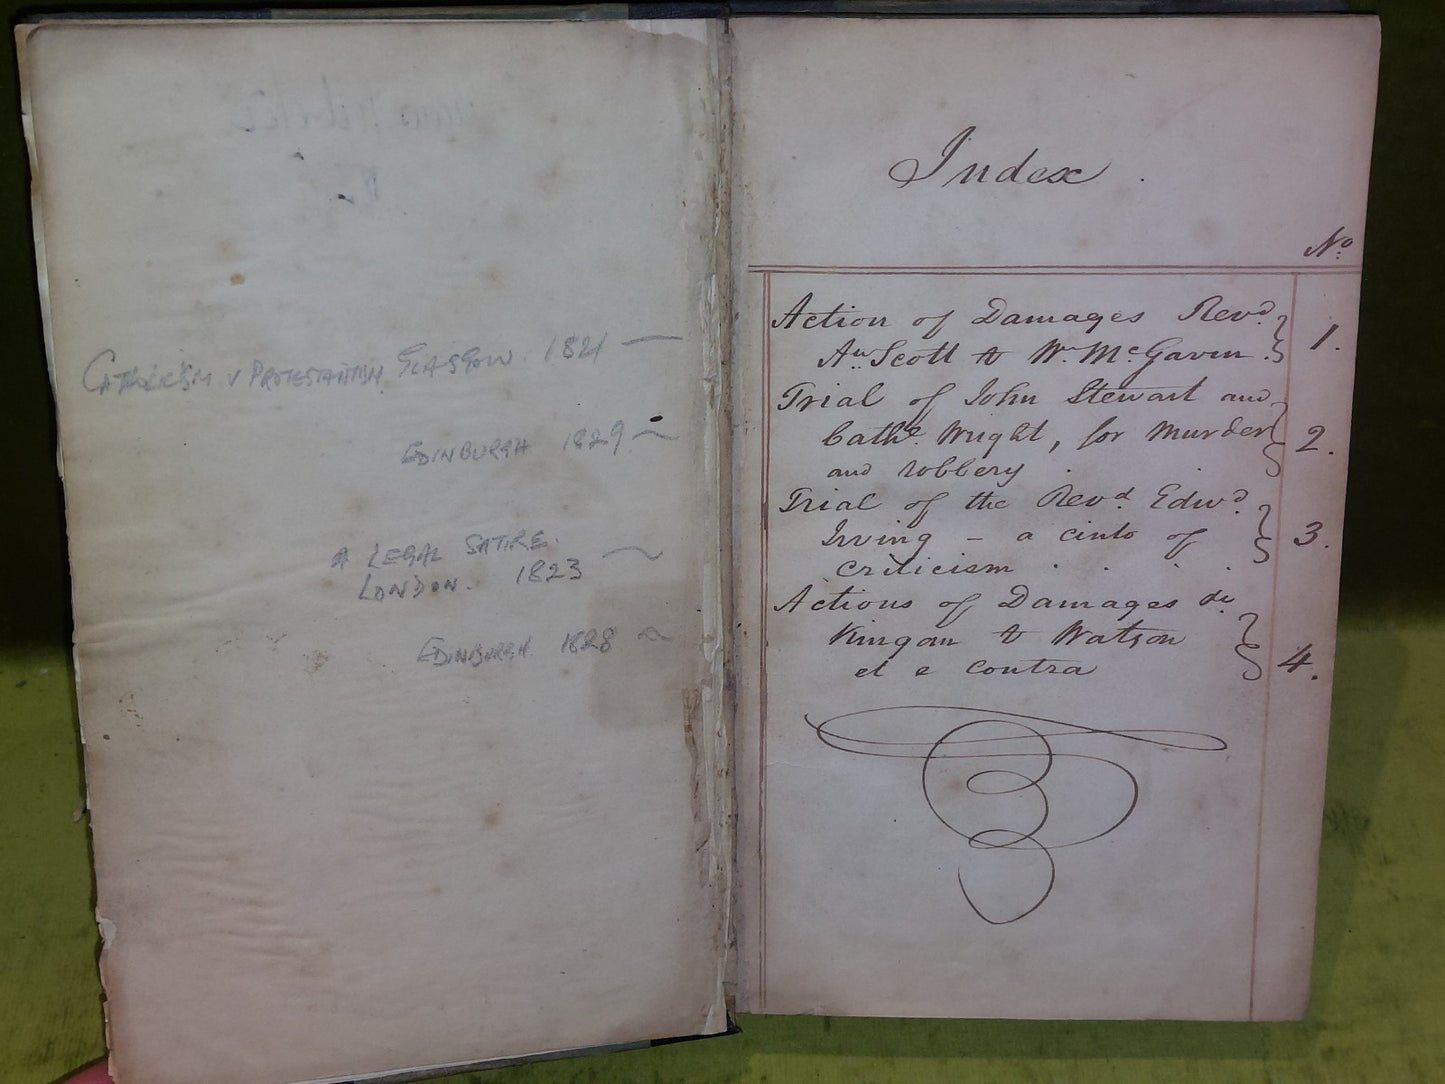 CATHOLICISM V PROTESTANTISM, GLASGOW. 1821
EDINBURGH 1829
A LEGAL SATIRE.
LONDON. 1823
EDINBURGH. 1828
Index
No.
Action of Damages Revd.
Aw. Scott & Wm. McGavin. 1.
Trial of John Stewart and
Cathe. Wright, for Murder
and robbery . 2.
Trial of the Revd. Edwd.
Irving - a cento of
Criticism . . . . 3.
Actions of Damages
Kingan & Watson
et e contra 4.